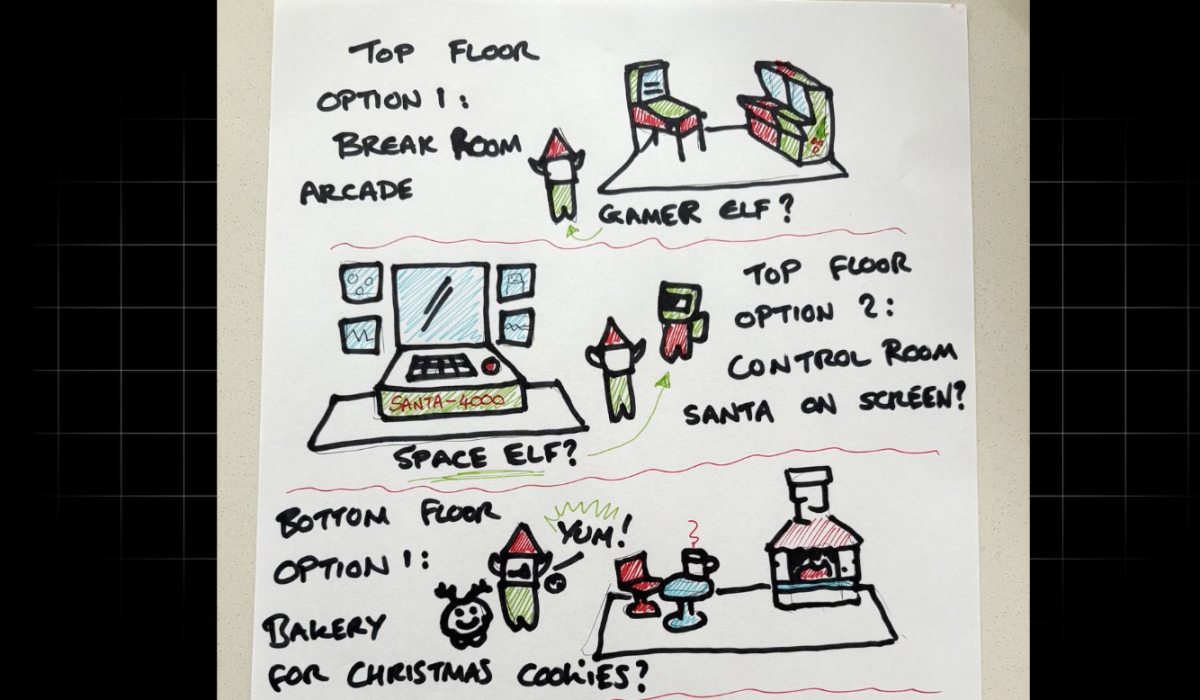 TOP FLOOR
OPTION 1:
BREAK ROOM
ARCADE
GAMER ELF?
TOP FLOOR
OPTION 2:
CONTROL ROOM
SANTA ON SCREEN?
SANTA-4000
SPACE ELF?
BOTTOM FLOOR
OPTION 1:
YUM!
BAKERY
FOR CHRISTMAS COOKIES?